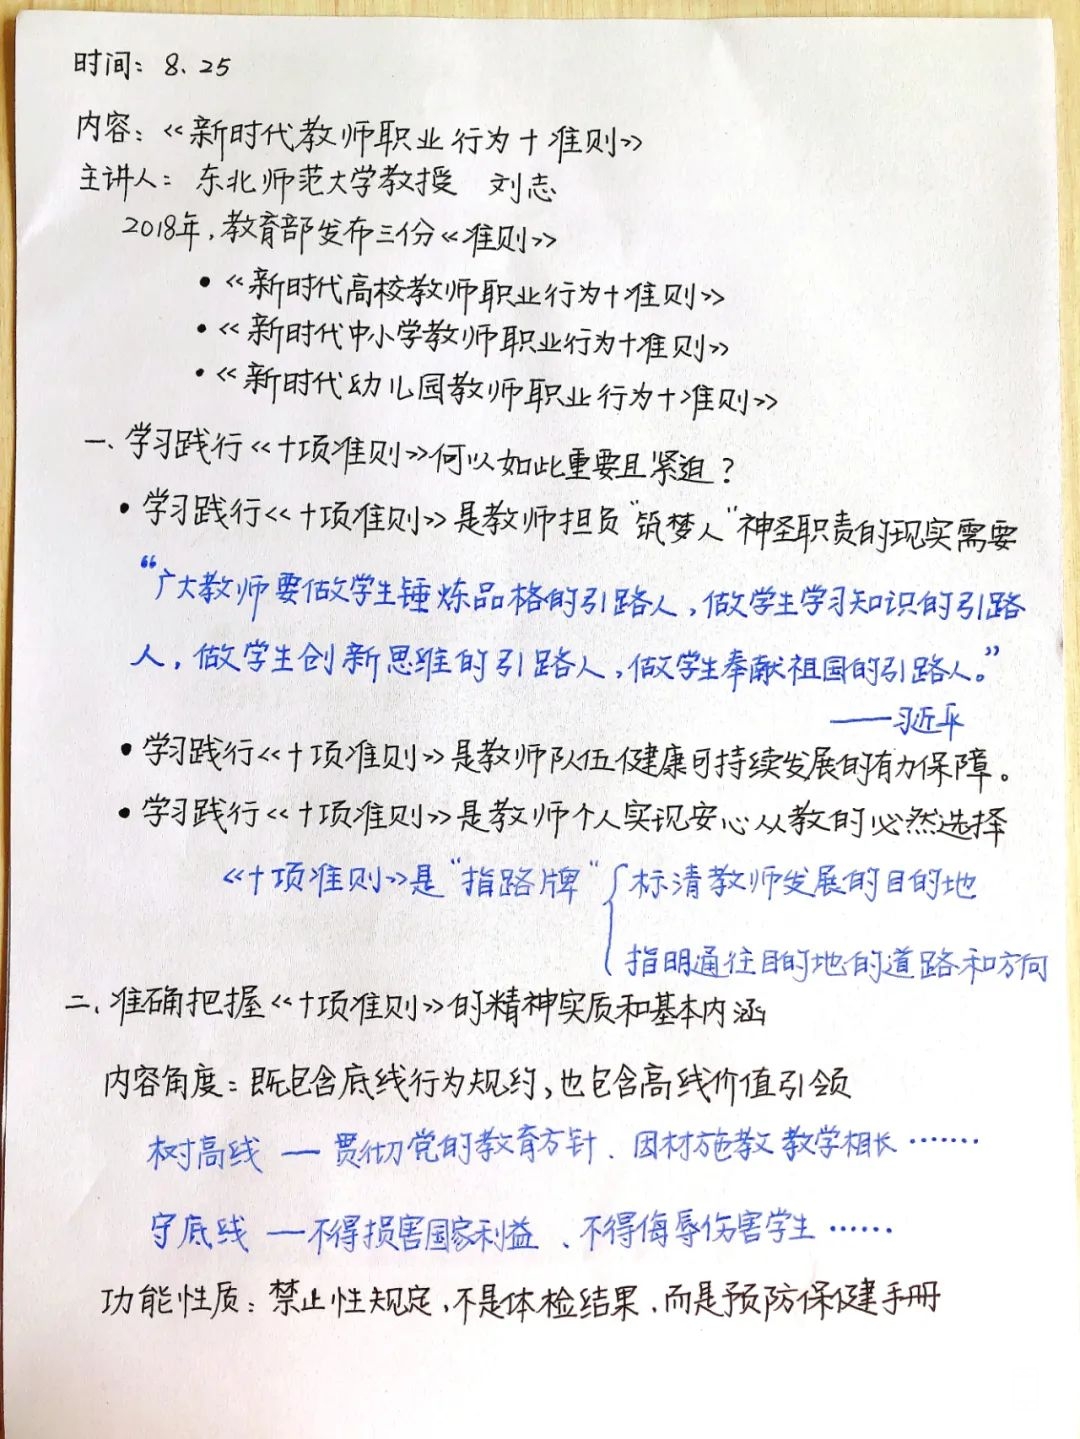 时间：8.25
内容：《新时代教师职业行为十准则》
主讲人：东北师范大学教授 刘志
2018年，教育部发布三份《准则》
•《新时代高校教师职业行为十准则》
•《新时代中小学教师职业行为十准则》
•《新时代幼儿园教师职业行为十准则》
一、学习践行《十项准则》何以如此重要且紧迫？
• 学习践行《十项准则》是教师担负“筑梦人”神圣职责的现实需要
“广大教师要做学生锤炼品格的引路人，做学生学习知识的引路
人，做学生创新思维的引路人，做学生奉献祖国的引路人。”
——习近平
• 学习践行《十项准则》是教师队伍健康可持续发展的有力保障。
• 学习践行《十项准则》是教师个人实现安心从教的必然选择
《十项准则》是“指路牌”{标清教师发展的目的地
指明通往目的地的道路和方向
二、准确把握《十项准则》的精神实质和基本内涵
内容角度：既包含底线行为规约，也包含高线价值引领
树高线 — 贯彻党的教育方针、因材施教 教学相长……
守底线 — 不得损害国家利益、不得侮辱伤害学生……
功能性质：禁止性规定，不是体检结果，而是预防保健手册